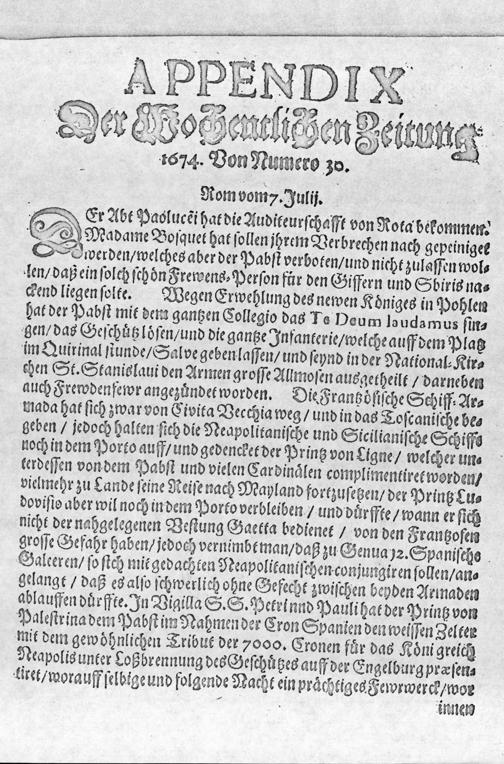 APPENDIX
Der Wochentlichen Zeitung
1674. Von Numero 30.
Rom vom 7. Julij.
DEr Abt Paoluceï hat die Auditeurschafft von Rota bekommen.
Madame Bosquet hat sollen jhrem Verbrechen nach gepeiniget
werden/welches aber der Pabst verboten/und nicht zulassen wol-
len/daß ein solch schön Frewens-Person für den Giffern und Sbiris na-
ckend liegen solte. Wegen Erwehlung des newen Königes in Pohlen
hat der Pabst mit dem gantzen Collegio das Te Deum laudamus sin-
gen/das Geschütz lösen/und die gantze Infanterie/welche auff dem Platz
im Quirinal stunde/Salve geben lassen/und seynd in der National-Kir-
chen St. Stanislavi den Armen grosse Allmosen ausgetheilt/darneben
auch Frewdenfewr angezündet worden. Die Frantzösische Schiff-Ar-
mada hat sich zwar von Civita Vecchia weg/und in das Toscanische be-
geben/jedoch halten sich die Neapolitanische und Sicilianische Schiffe
noch in dem Porto auff/und gedencket der Printz von Ligne/welcher un-
terdessen von dem Pabst und vielen Cardinälen complimentiret worden/
vielmehr zu Lande seine Reise nach Mayland fortzusetzen/der Printz Lu-
dovisio aber wil noch in dem Porto verbleiben/und dürffte/wann er sich
nicht der nahgelegenen Vestung Gaetta bedienet/von den Frantzosen
grosse Gefahr haben/jedoch vernimbt man/daß zu Genua 32. Spanische
Galeeren/so sich mit gedachten Neapolitanischen conjungiren sollen/an-
gelangt/daß es also schwerlich ohne Gefecht zwischen beyden Armaden
ablauffen dürffte. In Vigilia S.S. Petri und Pauli hat der Printz von
Palestrina dem Pabst im Nahmen der Cron Spanien den weissen Zelter
mit dem gewöhnlichen Tribut der 7000. Cronen für das Königreich
Neapolis unter Loßbrennung des Geschützes auff der Engelburg præsen-
tiret/worauff selbige und folgende Nacht ein prächtiges Fewrwerck/wor
innen